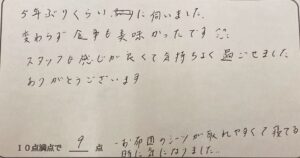 5年ぶりくらいに伺いました。
変わらず食事も美味かったです
スタッフも感じが良くて気持ちよく過ごせました
ありがとうございます
10点満点で 9 点
・お布団のシーツが取れやすくて寝てる
時に気になりました。